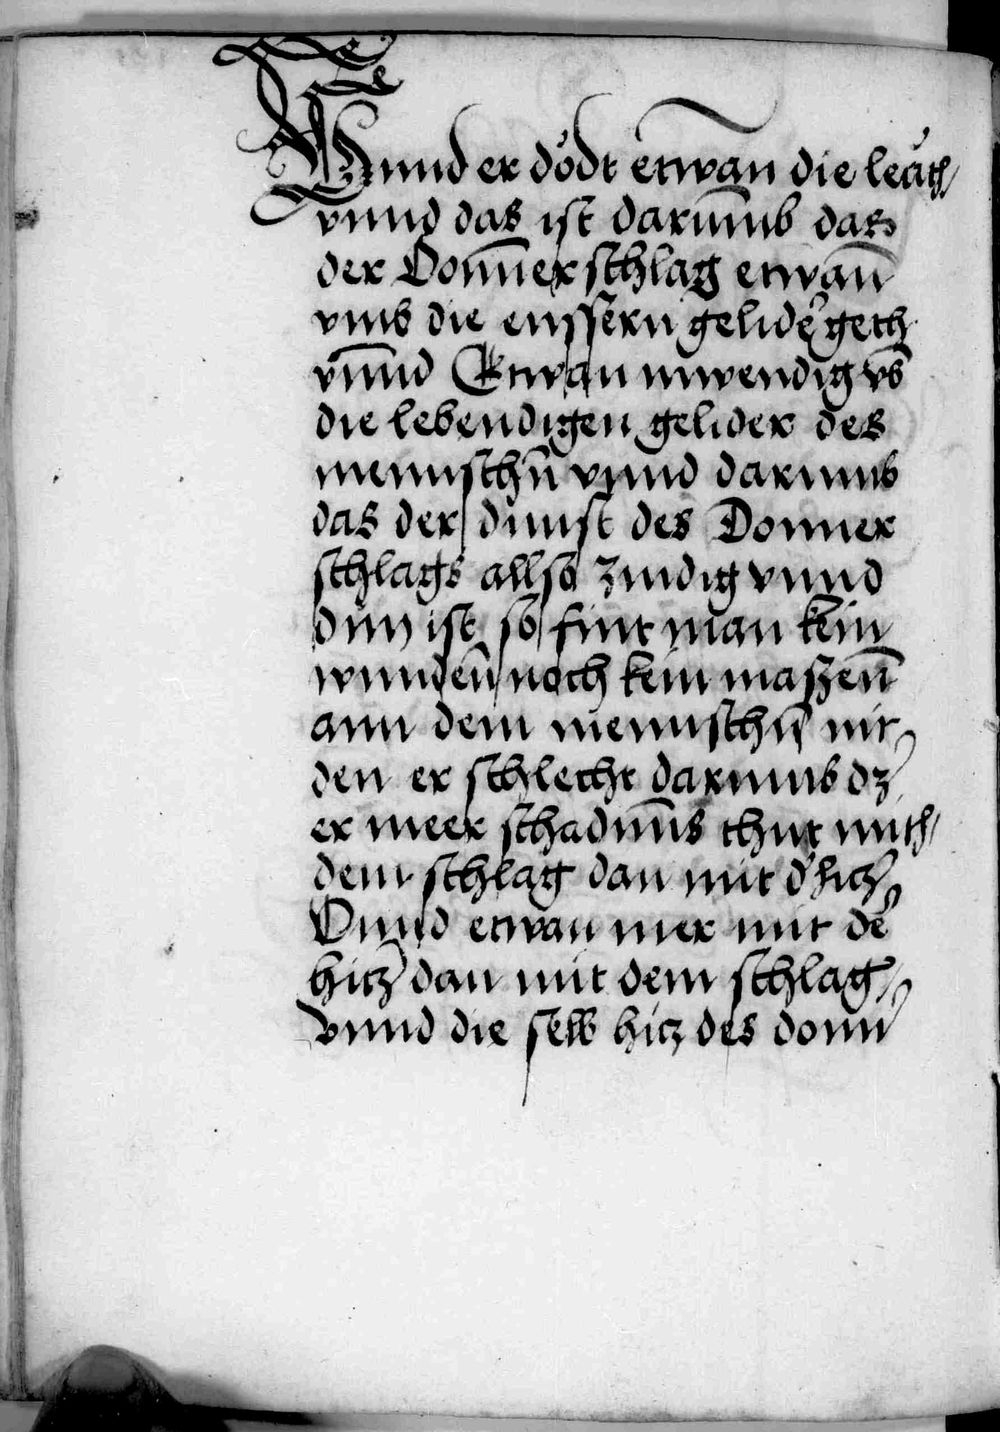 Vnnd er dödt etwan die leüth
vnnd das ist darum̄b das
der Donn̄er schlag etwan̄
vmb die eüssern gelider geth
vn̄nd Etwan inwendig vb̄
die lebendigen gelider des
mennschn̄ vnnd darumb
das der dunst des Donner
schlags allso zindig vnnd
dün ist so fint man kein
wunden̄ noch kein maszen̄
ann dem mennschn̄ mit
den er schlecht darumb dz
er meer schadun̄s thut mith
dem schlag dan mit d' hitz
Vnnd etwan mer mit der
hitz dan mit dem schlag
vnnd die selb hitz des donn